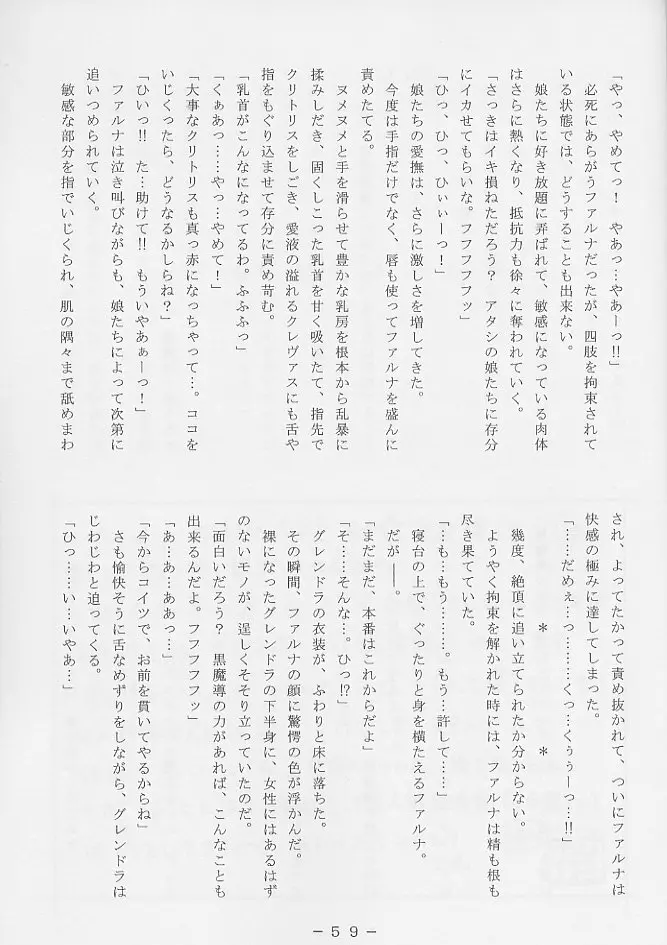 「やっ、やめてっ！　やあっ…やあーっ!!」
必死にあらがうファルナだったが、四肢を拘束されて
いる状態では、どうすることも出来ない。
娘たちに好き放題に弄ばれて、敏感になっている肉体
はさらに熱くなり、抵抗力も徐々に奪われていく。
「さっきはイキ損ねただろう？　アタシの娘たちに存分
にイカせてもらいな。フフフフフッ」
「ひっ、ひっ、ひぃぃーっ！」
娘たちの愛撫は、さらに激しさを増してきた。
今度は手指だけでなく、唇も使ってファルナを盛んに
責めたてる。
ヌメヌメと手を滑らせて豊かな乳房を根本から乱暴に
揉みしだき、固くしこった乳首を甘く吸いたて、指先で
クリトリスをしごき、愛液の溢れるクレヴァスにも舌や
指をもぐり込ませて存分に責め苛む。
「乳首がこんなになってるわ。ふふふっ」
「くぁあっ……やっ…やめて！」
「大事なクリトリスも真っ赤になっちゃって…。ココを
いじくったら、どうなるかしらね？」
「ひいっ!!　た…助けて!!　もういやあぁーっ！」
ファルナは泣き叫びながらも、娘たちによって次第に
追いつめられていく。
敏感な部分を指でいじくられ、肌の隅々まで舐めまわ
され、よってたかって責め抜かれて、ついにファルナは
快感の極みに達してしまった。
「……だめぇ…っ………くっ…くぅぅーっ…!!」
＊　　　＊
幾度、絶頂に追い立てられたか分からない。
ようやく拘束を解かれた時には、ファルナは精も根も
尽き果てていた。
「…も…もう………。もう…許して……」
寝台の上で、ぐったりと身を横たえるファルナ。
だが――。
「まだまだ、本番はこれからだよ」
「そ……そんな…。ひっ!?」
グレンドラの衣装が、ふわりと床に落ちた。
その瞬間、ファルナの顔に驚愕の色が浮かんだ。
裸になったグレンドラの下半身に、女性にはあるはず
のないモノが、逞しくそそり立っていたのだ。
「面白いだろう？　黒魔導の力があれば、こんなことも
出来るんだよ。フフフフフッ」
「あ…あ…ああっ…」
「今からコイツで、お前を貫いてやるからね」
さも愉快そうに舌なめずりをしながら、グレンドラは
じわじわと迫ってくる。
「ひっ……い…いやあ…」
－５９－